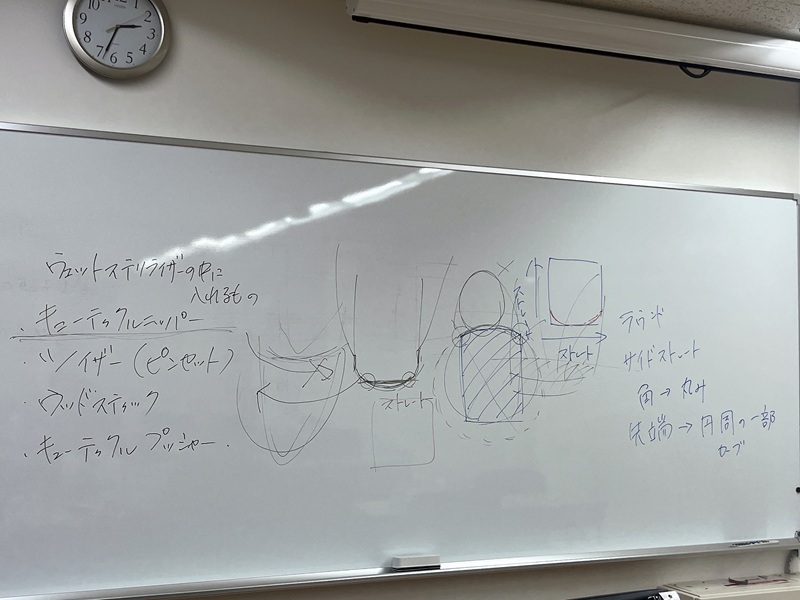 10
1
2
3
4
5
6
7
ウェットステリライザーの中に
入れるもの
・キューティクルニッパー
・ツイザー(ピンセット)
・ウッドスティック
・キューティクルプッシャー.
ストレート
ストレート
ストレート
ラウンド
サイドストレート
角→丸み
先端→円周の一部
カーブ